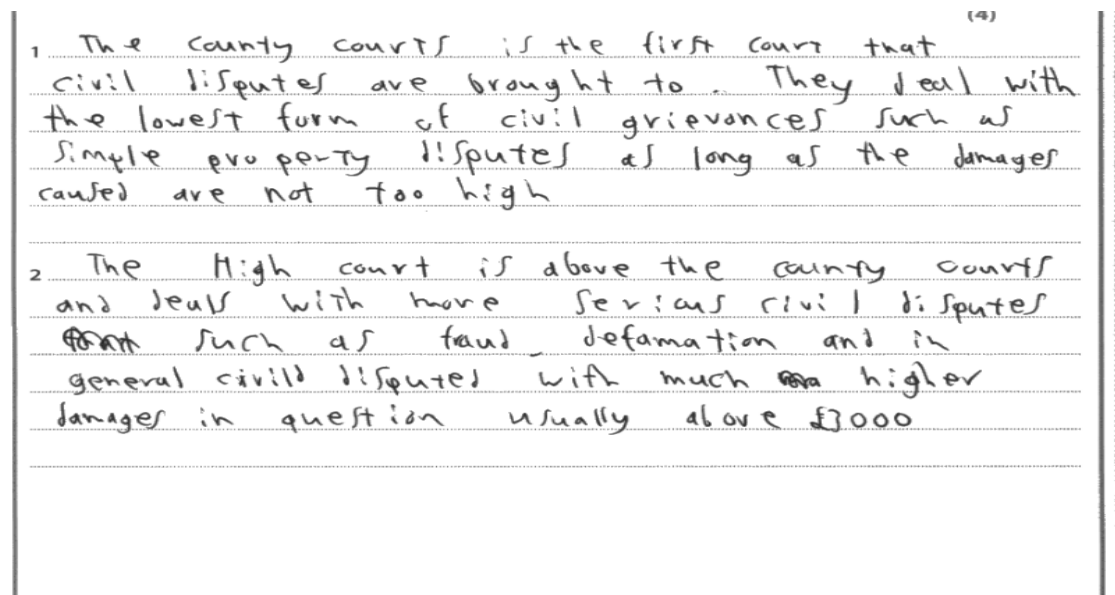 (4)
1 The county courts is the first court that
civil disputes are brought to. They deal with
the lowest form of civil grievances such as
simple property disputes as long as the damages
caused are not too high
2 The High court is above the county courts
and deals with more serious civil disputes
such as fraud defamation and in
general civild disputes with much higher
damages in question usually above £3000